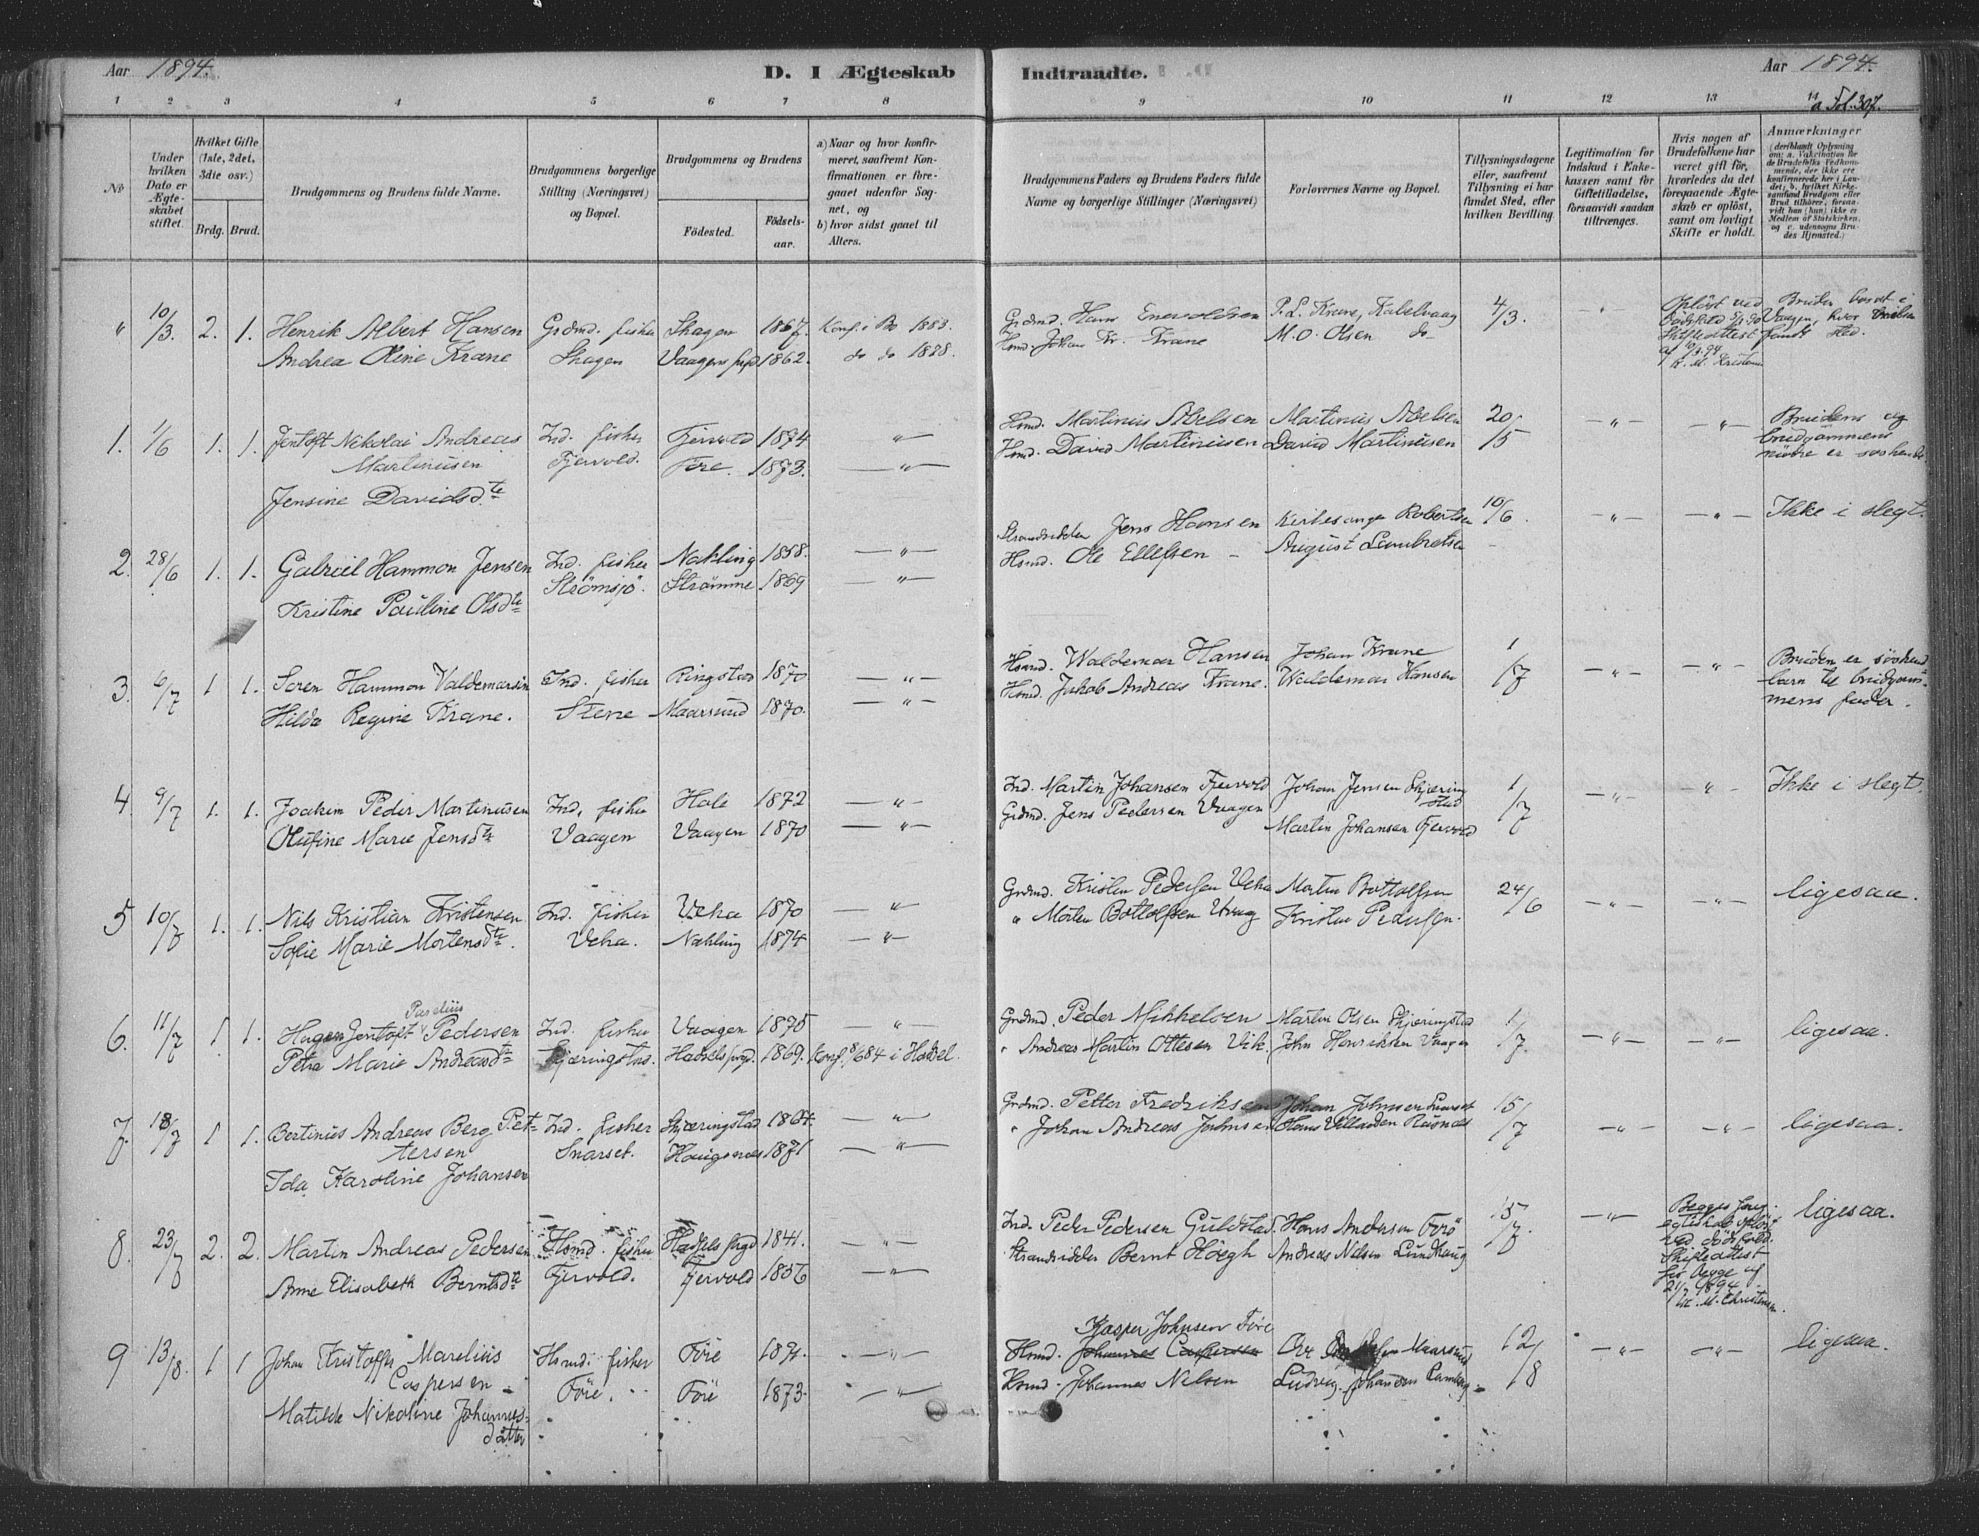 Aar 1894.
D. I Ægteskab Indtraadte.
Aar 1894.
a Fol. 307.
1 2 3 4 5 6 7 8 9 10 11 12 13 14
No
Under hvilken Dato er Ægteskabet stiftet.
Hvilket Gifte (1ste, 2det, 3die osv.)
Brdg. Brud.
Brudgommens og Brudens fulde Navne.
Brudgommens borgerlige Stilling (Næringsvei) og Bopæl.
Brudgommens og Brudens
Fødested. Fødselsaar.
a) Naar og hvor konfirmeret, saafremt Konfirmationen er foregaaet udenfor Sognet, og
b) hvor sidst gaaet til Alters.
Brudgommens Faders og Brudens Faders fulde Navne og borgerlige Stillinger (Næringsvei)
Forlovernes Navne og Bopæl.
Tillysningsdagene eller, saafremt Tillysning ei har fundet Sted, efter hvilken Bevilling.
Legitimation for Indskud i Enkekassen samt for Giftetilladelse, forsaavidt saadan tiltrænges.
Hvis nogen af Brudefolkene har været gift før, hvorledes da det foregaaende Ægteskab er opløst, samt om lovligt Skifte er holdt.
Anmærkninger
" 10/3 2. 1. Henrik Albert Hansen Grdmd. fisker Skagen 1867. Konf. i Bø 1883. Grdmd. Hans Enevoldsen P. L. Krane, Kabelvaag 4/3.
Andrea Oline Krane Skagen Vaagens prgd 1862. do do 1828. Hsmd. Johan Fr. Krane M. O. Olsen do
Opløst ved Dødsfald Skifteattest af 10/3 94 K. M. Kristensen
Bruden bosat i Vaagen, hvor fandt sted.
1. 1/6 1. 1. Jentoft Nikolai Andreas Ind. fisker Fjervold 1874 — " — Hsmd. Martinus Abelsen Martinus Abelsen 20/5 — " — — " —
Martinusen Fjervold. Føre. 1873. — " — Hsmd. David Martinusen David Martinusen
Jensine Davidsdte
Brudens og brudgommens mødre er søskende.
2. 28/6 1. 1. Gabriel Hammon Jensen Ind. fisker Nakling 1858. — " — Strandsidder Jens Hansen Kirkesanger Robertsen 10/6 — " — — " — Ikke i slegt.
Kristine Pauline Olsdte Strømsjö. Strømme 1869 — " — Hsmd. Ole Ellefsen — August Lambretsen
3. 6/7 1 1. Soren Hammon Valdemarsen Ind. fisker Ringstad 1870 — " — Hsmd. Waldemar Hansen Johan Krane 1/7 — " — — " —
Hilda Regine Krane. Stene Maarsund 1870. — " — Hsmd. Jakob Andreas Krane. Waldemar Hansen
Bruden er søskendbarn til brudgommens fader.
4. 9/7 1. 1. Joakim Peder Martinusen Ind. fisker Hole 1872 — " — Ind. Martin Johansen Fjervold Johan Jensen Skjæringstad 1/7 — " — " Ikke i slegt.
Olufine Marie Jensdte Vaagen Vaagen 1870 — " — Grdmd. Jens Pedersen Vaagen Martin Johansen Fjervold
5 10/7 1. 1. Nils Kristian Kristensen Ind. fisker Veha 1870 — " — Grdmd. Kristen Pedersen Veha Morten Bottolfsen 24/6 — " — — " — ligesaa.
Sofie Marie Mortensdte. Veha. Nakling 1874 — " — " Morten Bottolfsen Kristen Pedersen.
6. 11/7 1 1. Hagen Jentoft Pareliüs Pedersen Ind. fisker Vaagen 1875 — " — Grdmd. Peder Mikkelsen Martin Olsen Skjæringstad 1/7. — " — — " — ligesaa.
Petra Marie Andreasdte Skjæringstad. Hadsels prgd. 1869. Konf. 84 i Hadsel. " Andreas Martin Ottesen Vik. John Henriksen Vaagen
7. 18/7 1 1. Bertinus Andreas Berg Pettersen Ind. fisker Skjæringstad 1864. — " — Grdmd. Petter Fredriksen Johan Johnsen Snarset 15/7 — " — — " — ligesaa.
Ida Karoline Johansen Snarset. Haugsnes 1871 — " — " Johan Andreas Johnsen Hans Villadsen
8. 23/7 2. 2. Martin Andreas Pedersen Hsmd. fisker Hadsels prgd 1841. — " — Ind. Peder Pedersen Guldstad. Hans Andersen Førö 15/7. — " — ligesaa.
Anne Elisabeth Berntsdte Fjervold. Fjervold 1856 — " — Strandsidder Bernt Høegh Andreas Nilsen Lundhaug
Begges forr. egteskab opløst ved dödsfald. Skifteattest for begge af 21/7 1894 K. M. Christensen.
9 13/8. 1 1 Johan Kristoffer Marelius Caspersen Hsmd. fisker Före 1891. — " — Hsmd. Johannes Caspersen Kasper Johnsen Före 12/8 — " — — " — ligesaa.
Matilde Nikoline Johannesdatter Före. Före 1873. — " — Hsmd. Johannes Nilsen Ludvig Johansen